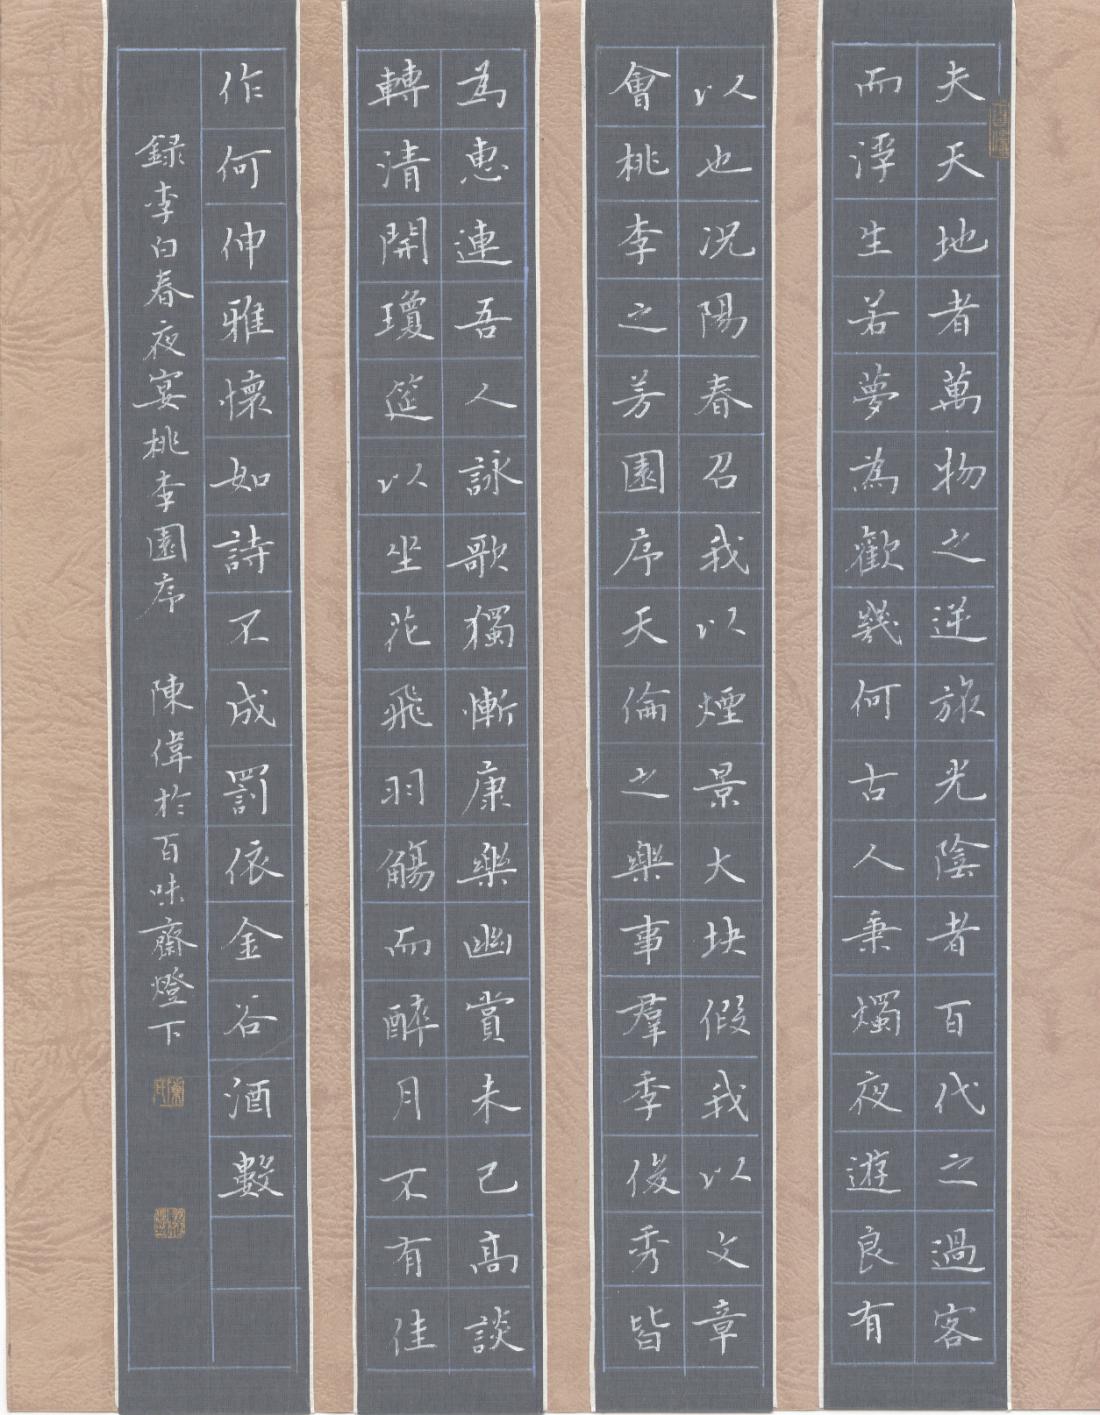 夫天地者萬物之逆旅光陰者百代之過客
而浮生若夢為歡幾何古人秉燭夜遊良有
以也況陽春召我以煙景大块假我以文章
會桃李之芳園序天倫之樂事羣季俊秀皆
為惠連吾人詠歌獨慚康樂幽賞未已高談
轉清開瓊筵以坐花飛羽觴而醉月不有佳
作何伸雅懷如詩不成罰依金谷酒數
録李白春夜宴桃李園序 陳偉於百味齋燈下